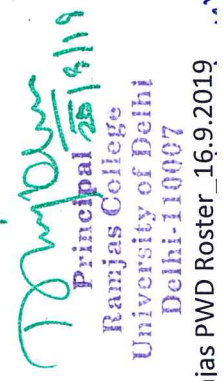 Principal
Ramjas College
University of Delhi
Delhi-110007
jas PWD Roster_16.9.2019